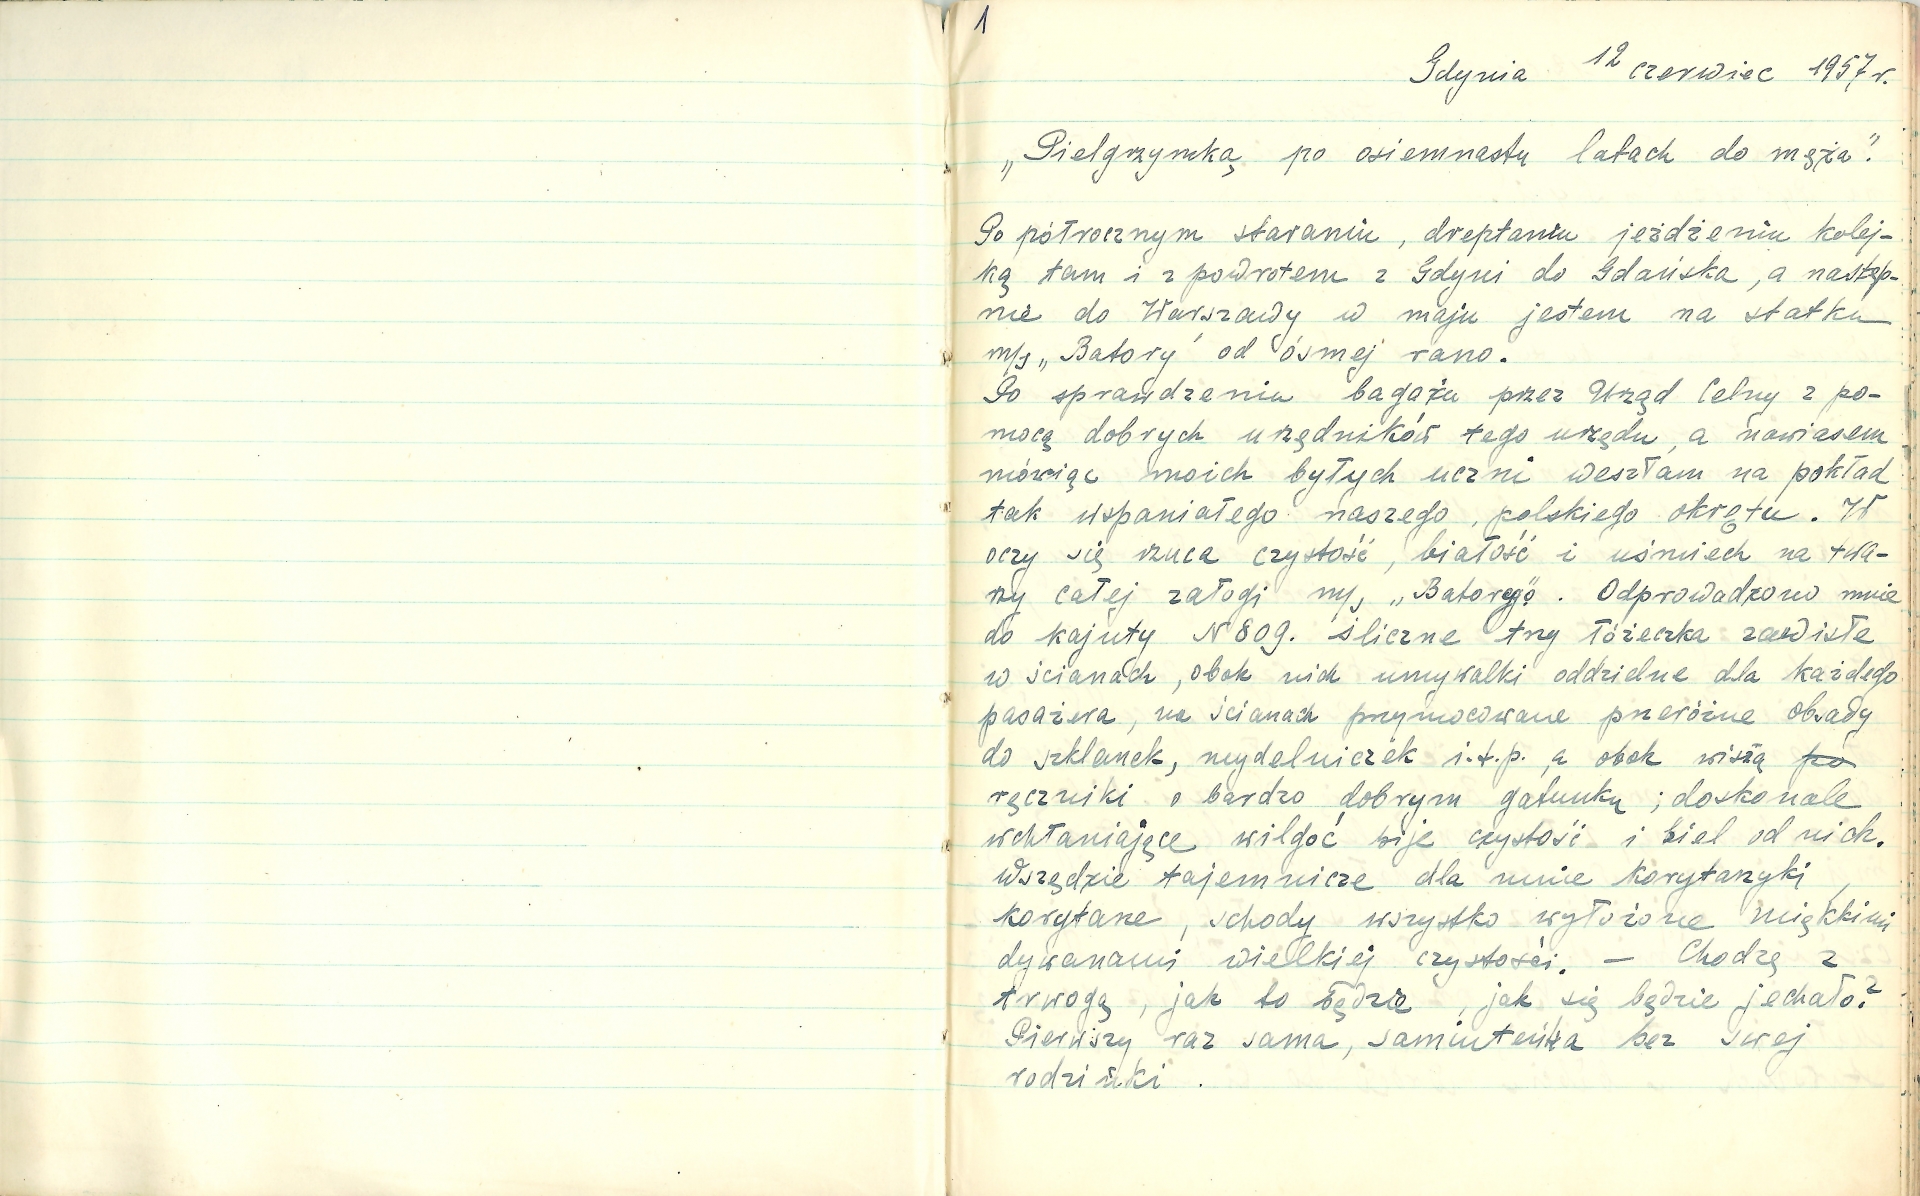 1
Gdynia 12 czerwiec 1957 r.
„Pielgrzymką po osiemnastu latach do męża".
Po półrocznym staraniu, dreptaniu jeżdżeniu kolej-
ką tam i z powrotem z Gdyni do Gdańska, a następ-
nie do Warszawy w maju jestem na statku
m/s „Batory" od ósmej rano.
Po sprawdzeniu bagażu przez Urząd Celny z po-
mocą dobrych urzędników tego urzędu, a nawiasem
mówiąc moich byłych uczni weszłam na pokład
tak wspaniałego naszego, polskiego okrętu. W
oczy się rzuca czystość, białość i uśmiech na twa-
rzy całej załogi m/s „Batorego". Odprowadzono mnie
do kajuty N 809. śliczne trzy łóżeczka zawisłe
w ścianach, obok nich umywalki oddzielne dla każdego
pasażera, na ścianach przymocowane przeróżne obsady
do szklanek, mydelniczek i.t.p. a obok wiszą po
ręczniki o bardzo dobrym gatunku; doskonale
wchłaniające wilgoć bije czystość i biel od nich.
Wszędzie tajemnicze dla mnie korytarzyki,
korytarze, schody wszystko wyłożone miękkimi
dywanami wielkiej czystości. — Chodzę z
trwogą, jak to będzie, jak się będzie jechało?
Pierwszy raz sama, samiuteńka bez swej
rodzinki.